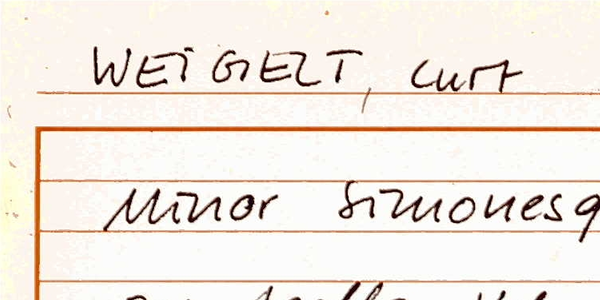 WEIGELT, Curt
Minor Simonesq